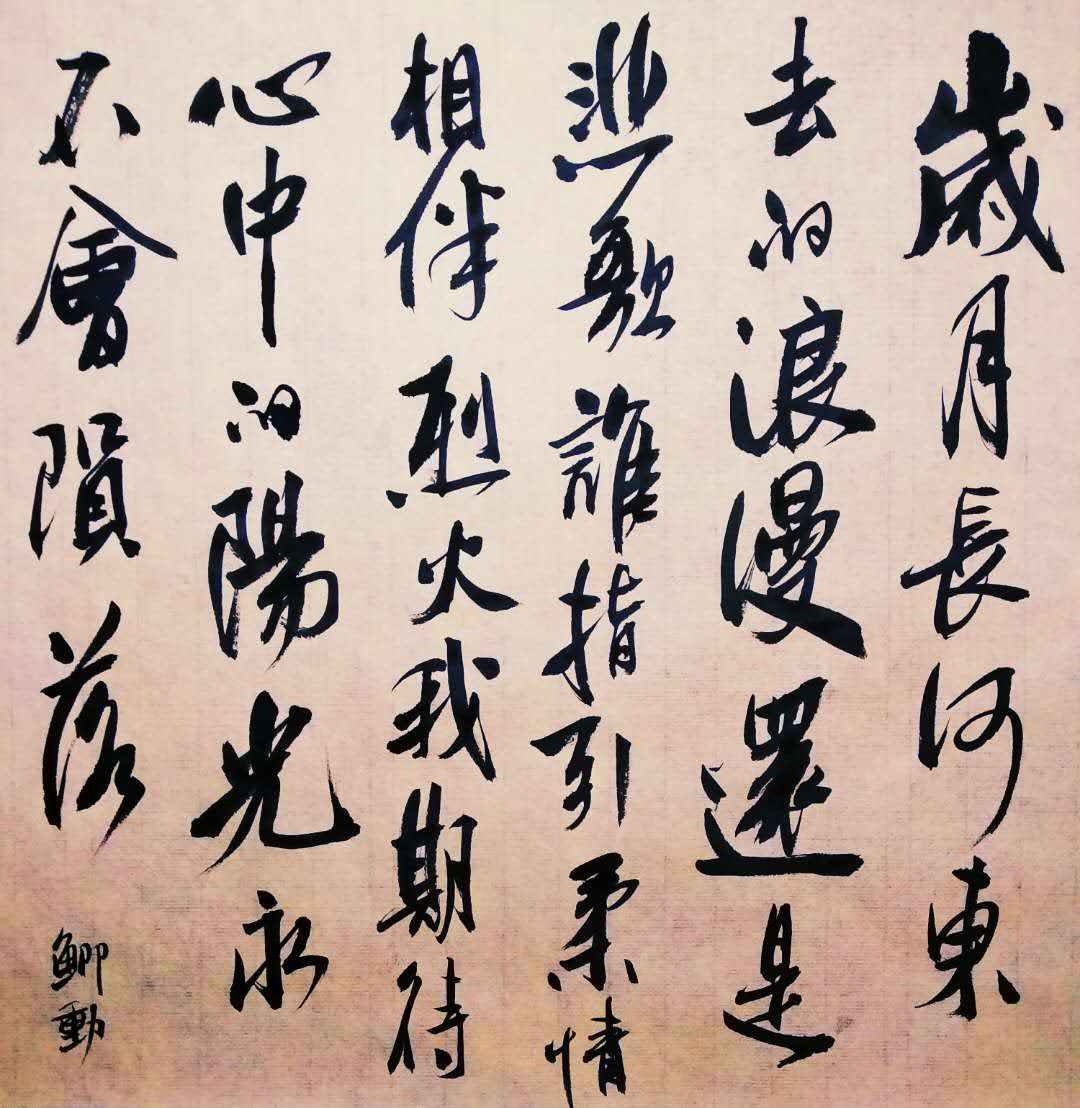 歲月長河東
去的浪漫還是
悲歌誰指引柔情
相伴烈火我期待
心中的陽光永
不會隕落
鯽動